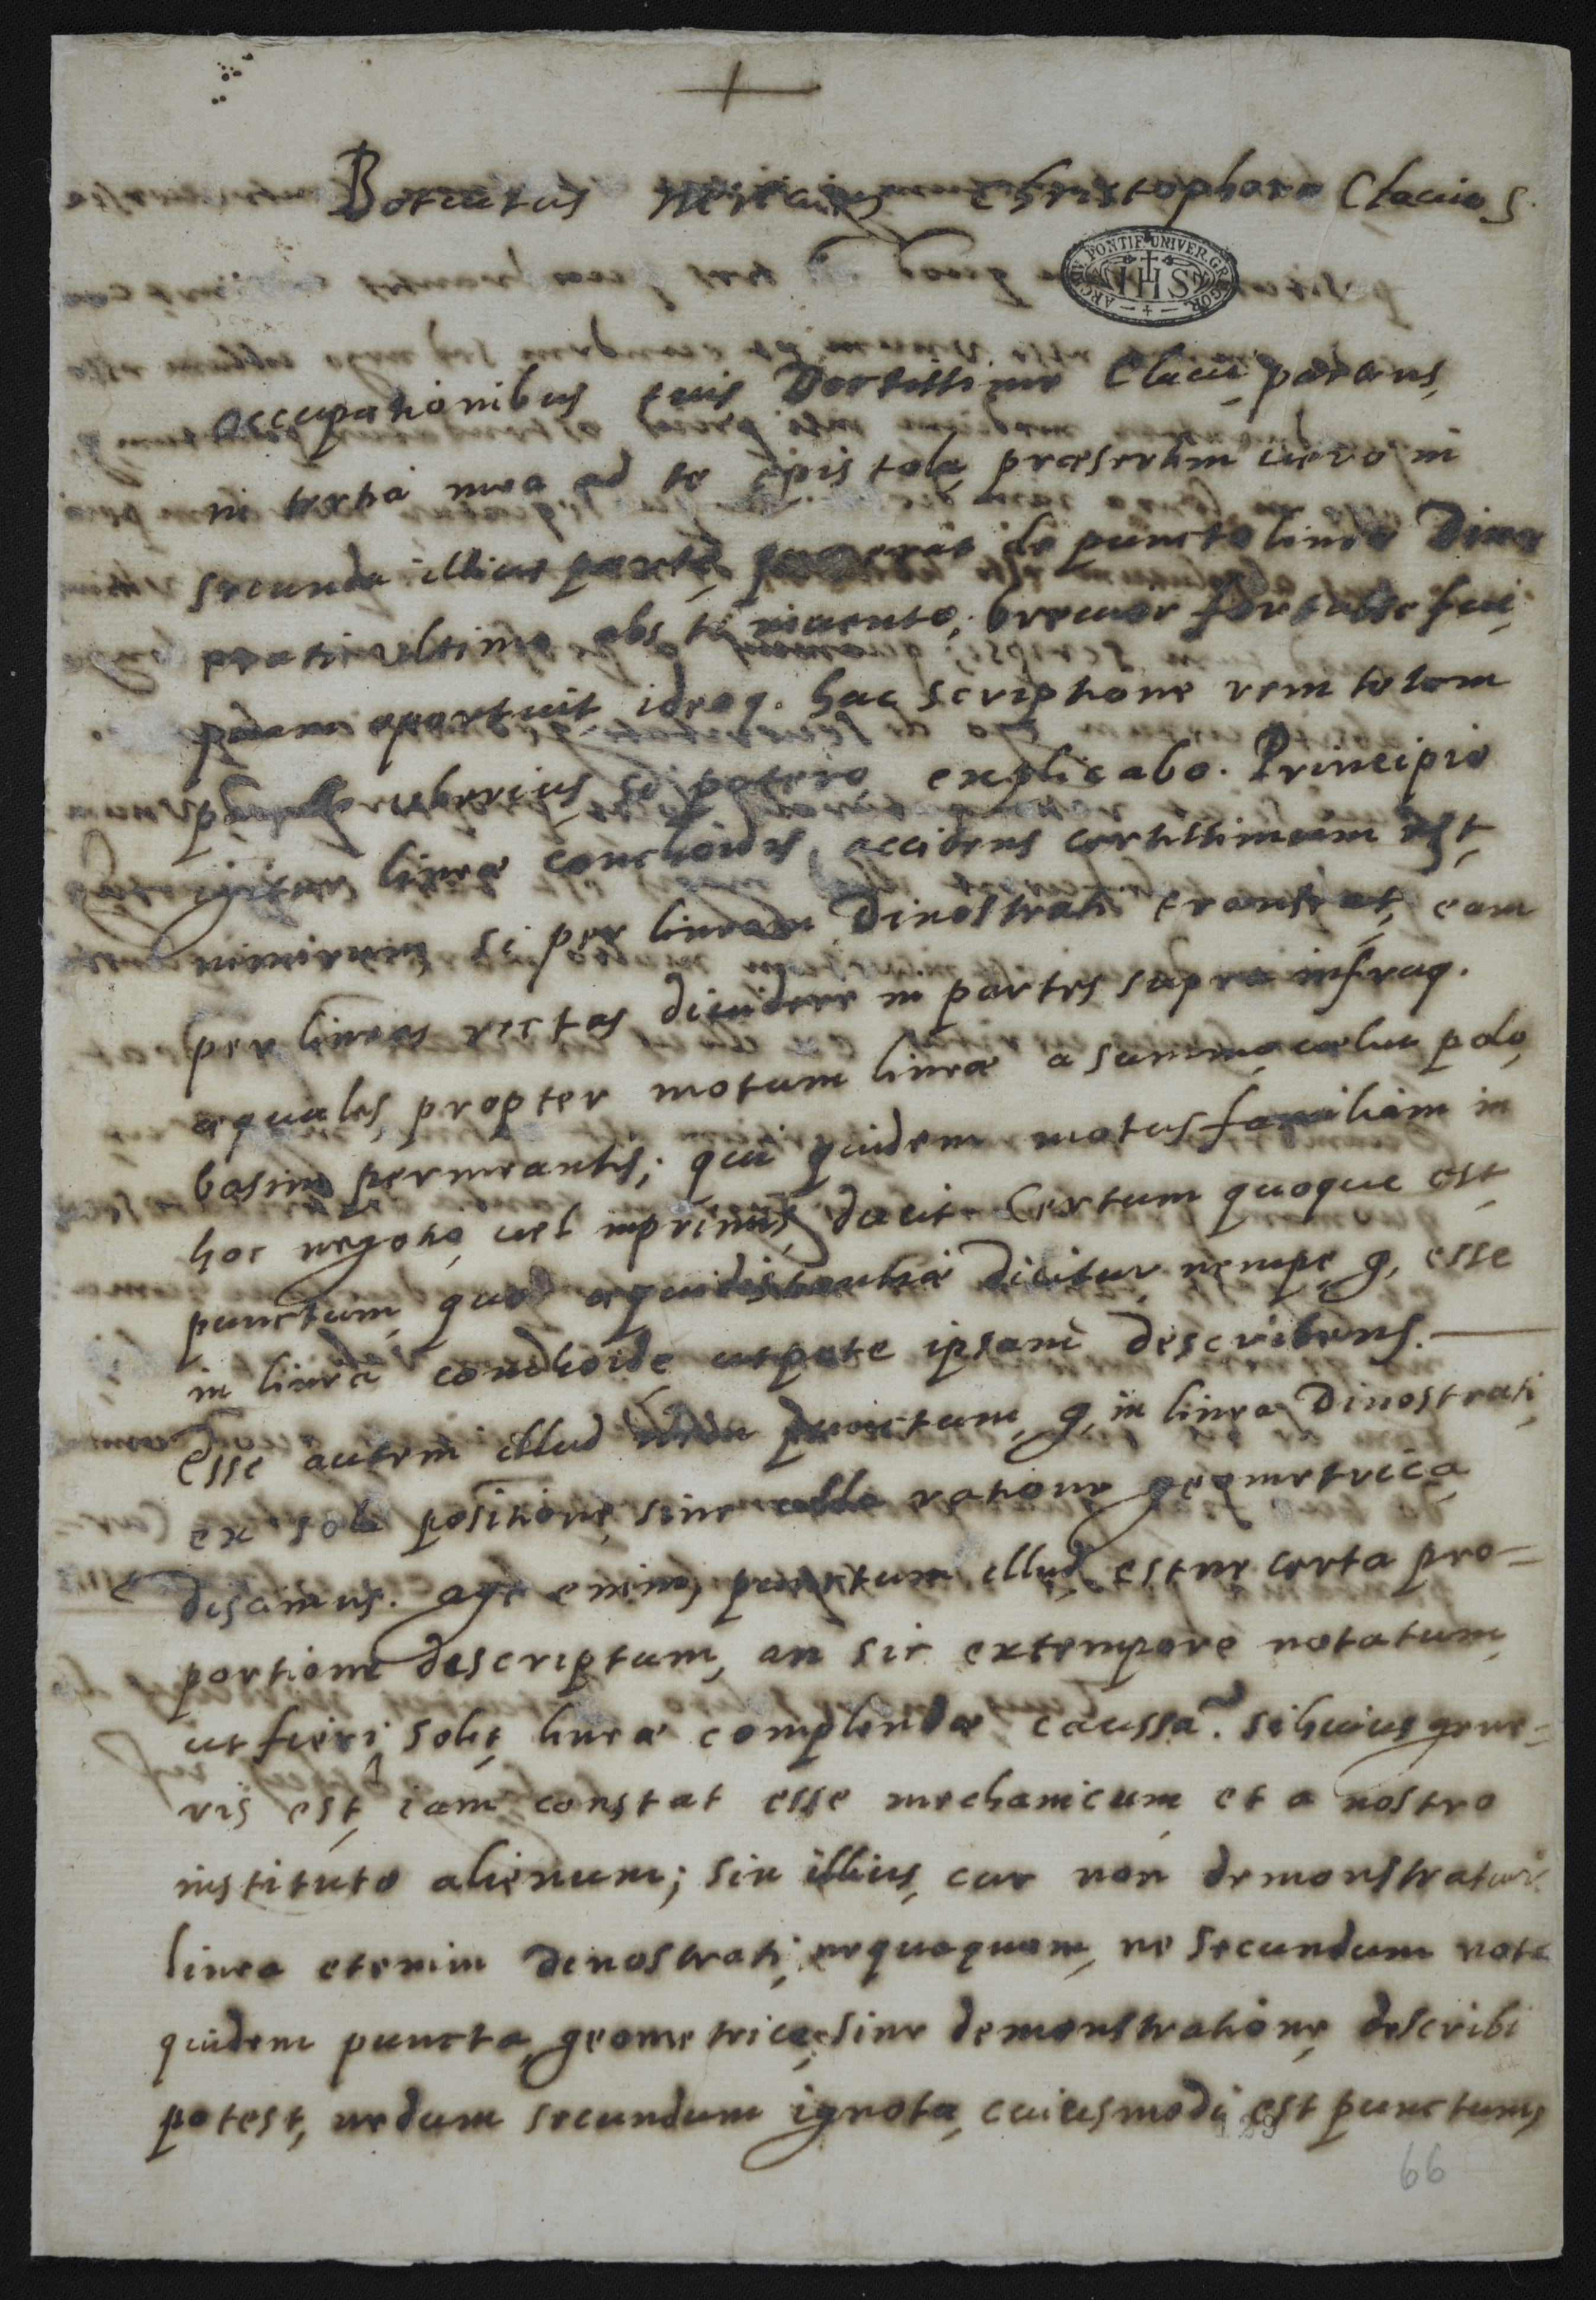 Botuitus Nericius Christophoro Clauio S.
ARCHIV. PONTIF. UNIVER. GREGOR.
IHS
Occupationibus tuis Doctissime Claui, parcens,
in tertia mea ad te epistola, præsertim uero in
secunda illius parte, erat de puncto lineæ Dino
strati ultimo abs te inuento; breuior fortasse fui,
quam oportuit, ideoq. hac scriptione rem totam
uberius, si potero explicabo. Principio
igitur lineæ conchoidis, accidens certissimum est,
nimirum, si per lineam Dinostrati transeat, eam
per lineas rectas diuidere in partes supra infraq.
æquales, propter motum lineæ a summo, uelut polo,
basim permeantis; qui quidem motus familiam in
hoc negotio, uel inprimis, ducit. Certum quoque est,
punctum, quod æquidistantia dicitur, nempe, g, esse
in linea conchoide utpote ipsam describens.
Esse autem illud punctum, g, in linea Dinostrati,
ex sola positione, sine ulla ratione geometrica
discimus. age enim, punctum illud, estne certa pro-
portione descriptum, an sic extempore notatum,
ut fieri solet, lineæ complendæ caussa. si huius gene-
ris est, iam constat esse mechanicum et a nostro
instituto alienum; sin illius, cur non demonstratur.
linea etenim Dinostrati, nequaquam, ne secundum nota
quidem puncta, geometrice, sine demonstratione, describi
potest, nedum secundum ignota, cuiusmodi est punctum,
129
66